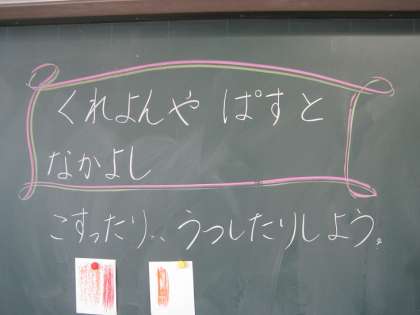 くれよんや ぱすと
なかよし
こすったり、うつしたりしよう。